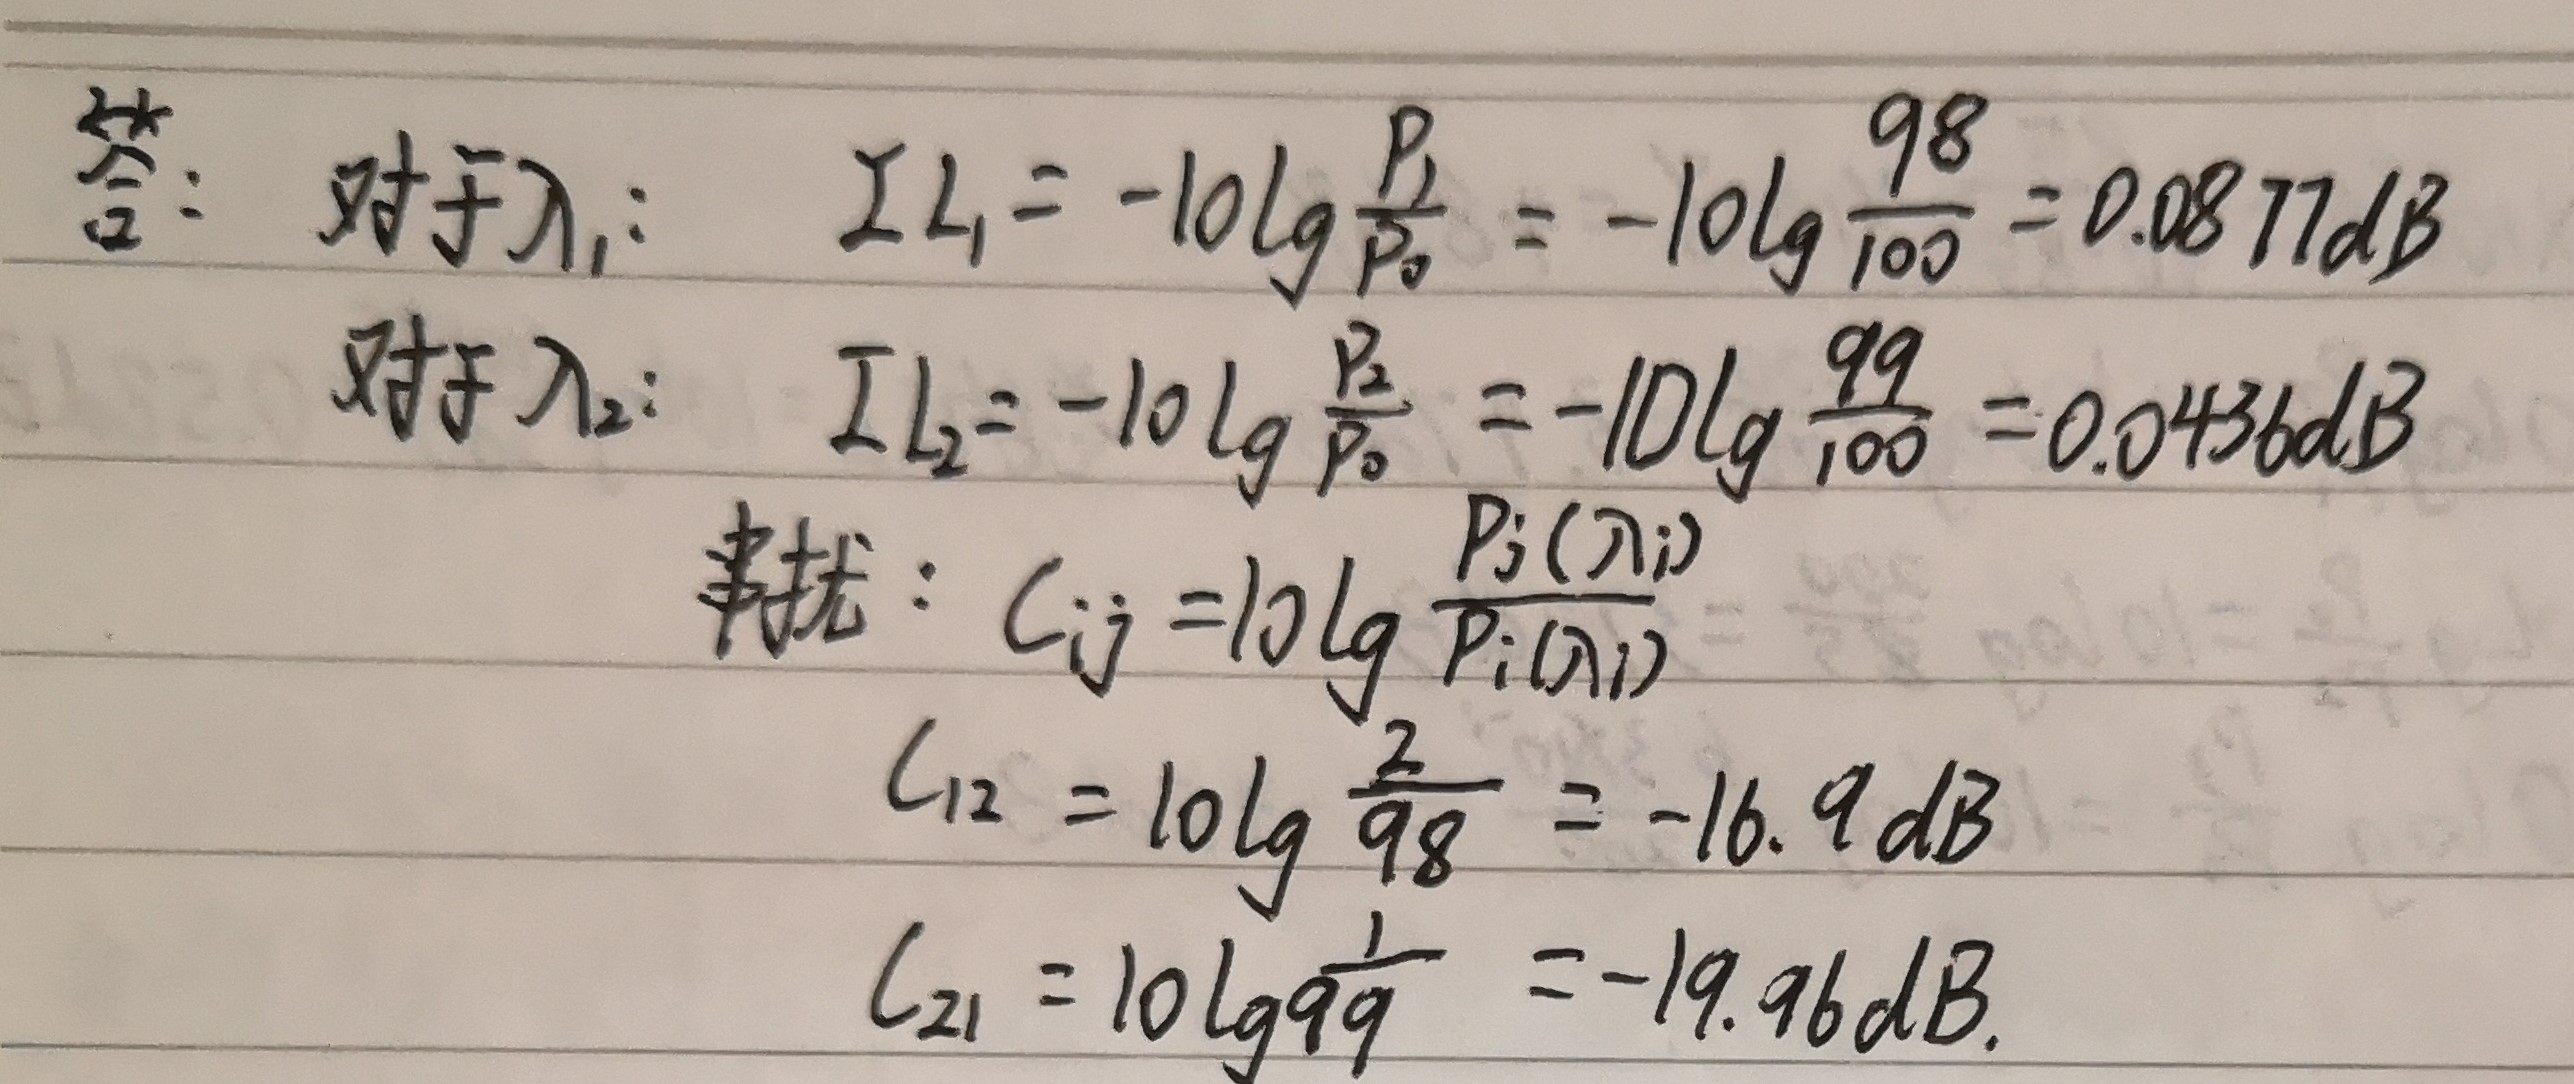 答: 对于λ₁: IL₁ = -10lg P₁/P₀ = -10lg 98/100 = 0.0877dB
对于λ₂: IL₂ = -10lg P₂/P₀ = -10lg 99/100 = 0.0436dB
串扰: Cij = 10lg Pj(λi)/Pi(λi)
C₁₂ = 10lg 2/98 = -16.9dB
C₂₁ = 10lg 1/99 = -19.96dB.